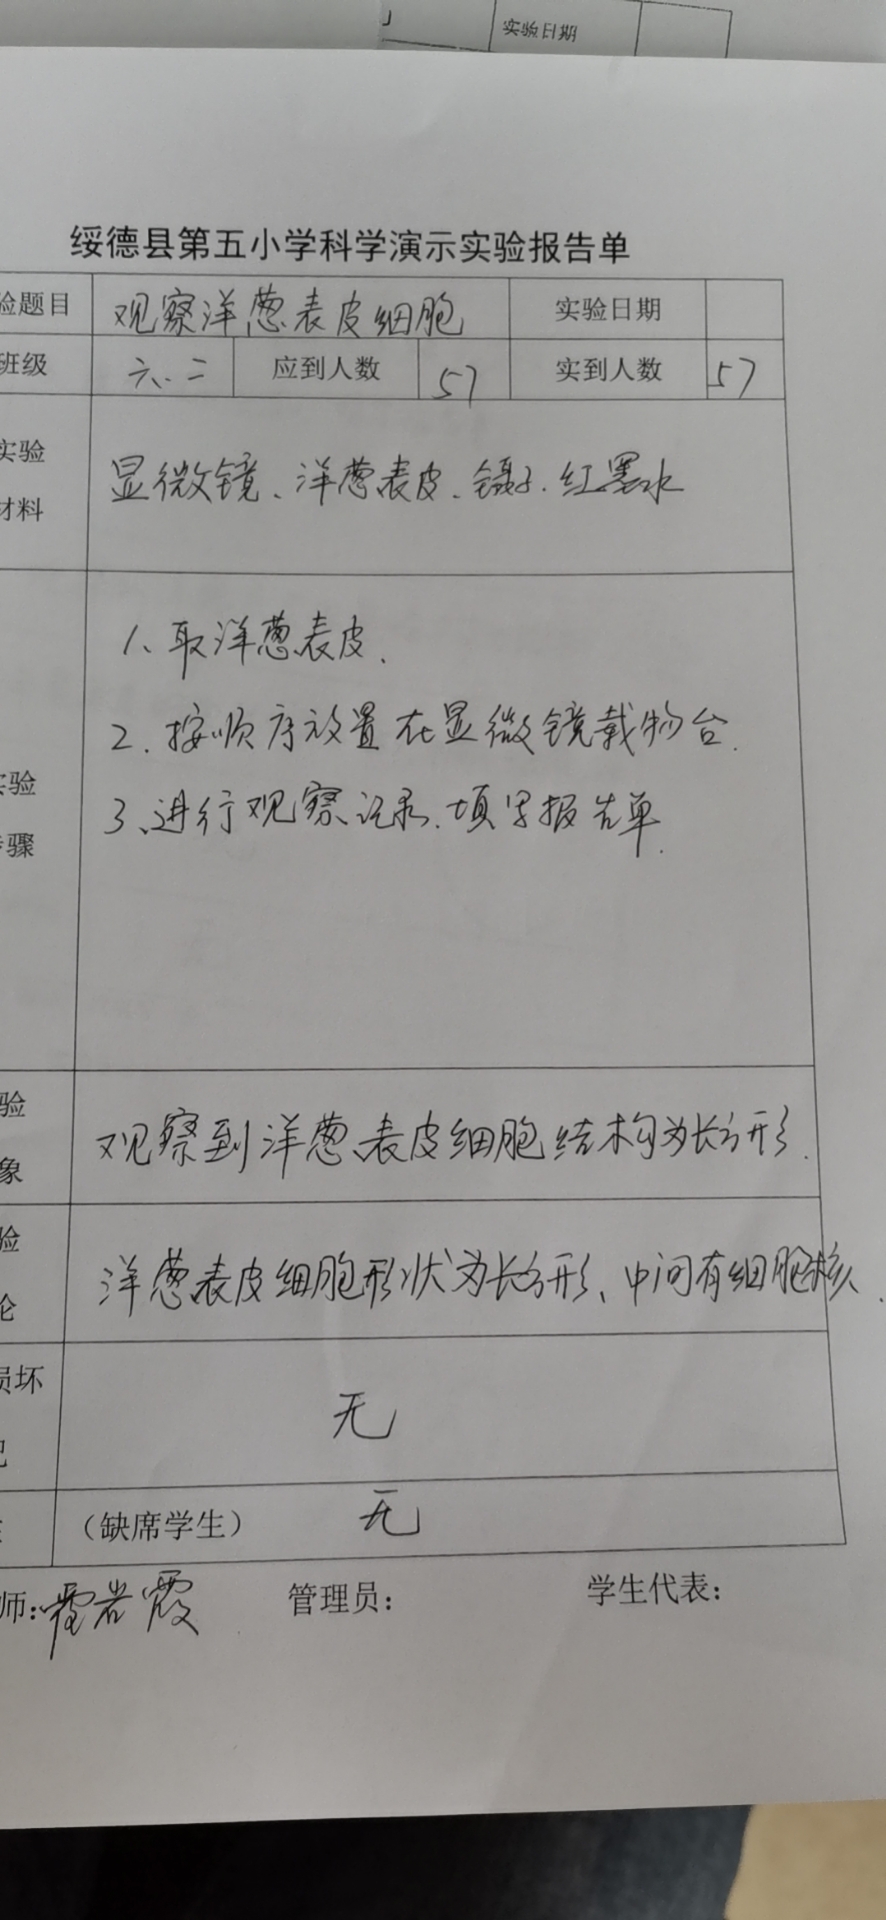 实验日期
绥德县第五小学科学演示实验报告单
验题目 观察洋葱表皮细胞 实验日期
班级 六.二 应到人数 57 实到人数 57
实验
材料
显微镜、洋葱表皮、镊子.红墨水
1、取洋葱表皮.
2.按顺序放置在显微镜载物台.
3、进行观察记录.填写报告单.
实验
步骤
验
象
观察到洋葱表皮细胞结构为长方形.
验
论
洋葱表皮细胞形状为长方形、中间有细胞核.
损坏
况
无
(缺席学生) 无
师: 霞 管理员: 学生代表: